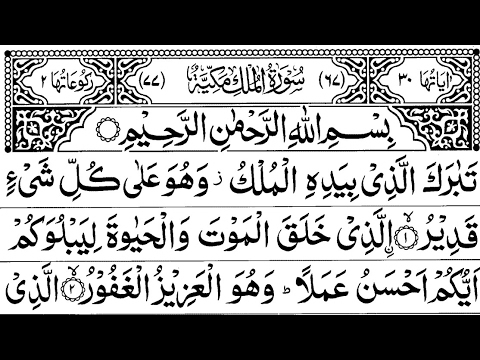 اٰیَاتُهَا ۳۰ (۶۷) سُوْرَةُ الْمُلْكِ مَكِّیَّةٌ (۷۷) رُكُوْعَاتُهَا ۲
بِسْمِ اللّٰهِ الرَّحْمٰنِ الرَّحِیْمِ
تَبٰرَكَ الَّذِیْ بِیَدِهِ الْمُلْكُ ز وَهُوَ عَلٰی كُلِّ شَیْءٍ
قَدِیْرُ ۙ﴿۱﴾ ِ۟الَّذِیْ خَلَقَ الْمَوْتَ وَالْحَیٰوةَ لِیَبْلُوَكُمْ
اَیُّكُمْ اَحْسَنُ عَمَلًا ؕ وَهُوَ الْعَزِیْزُ الْغَفُوْرُ ۙ﴿۲﴾ الَّذِیْ